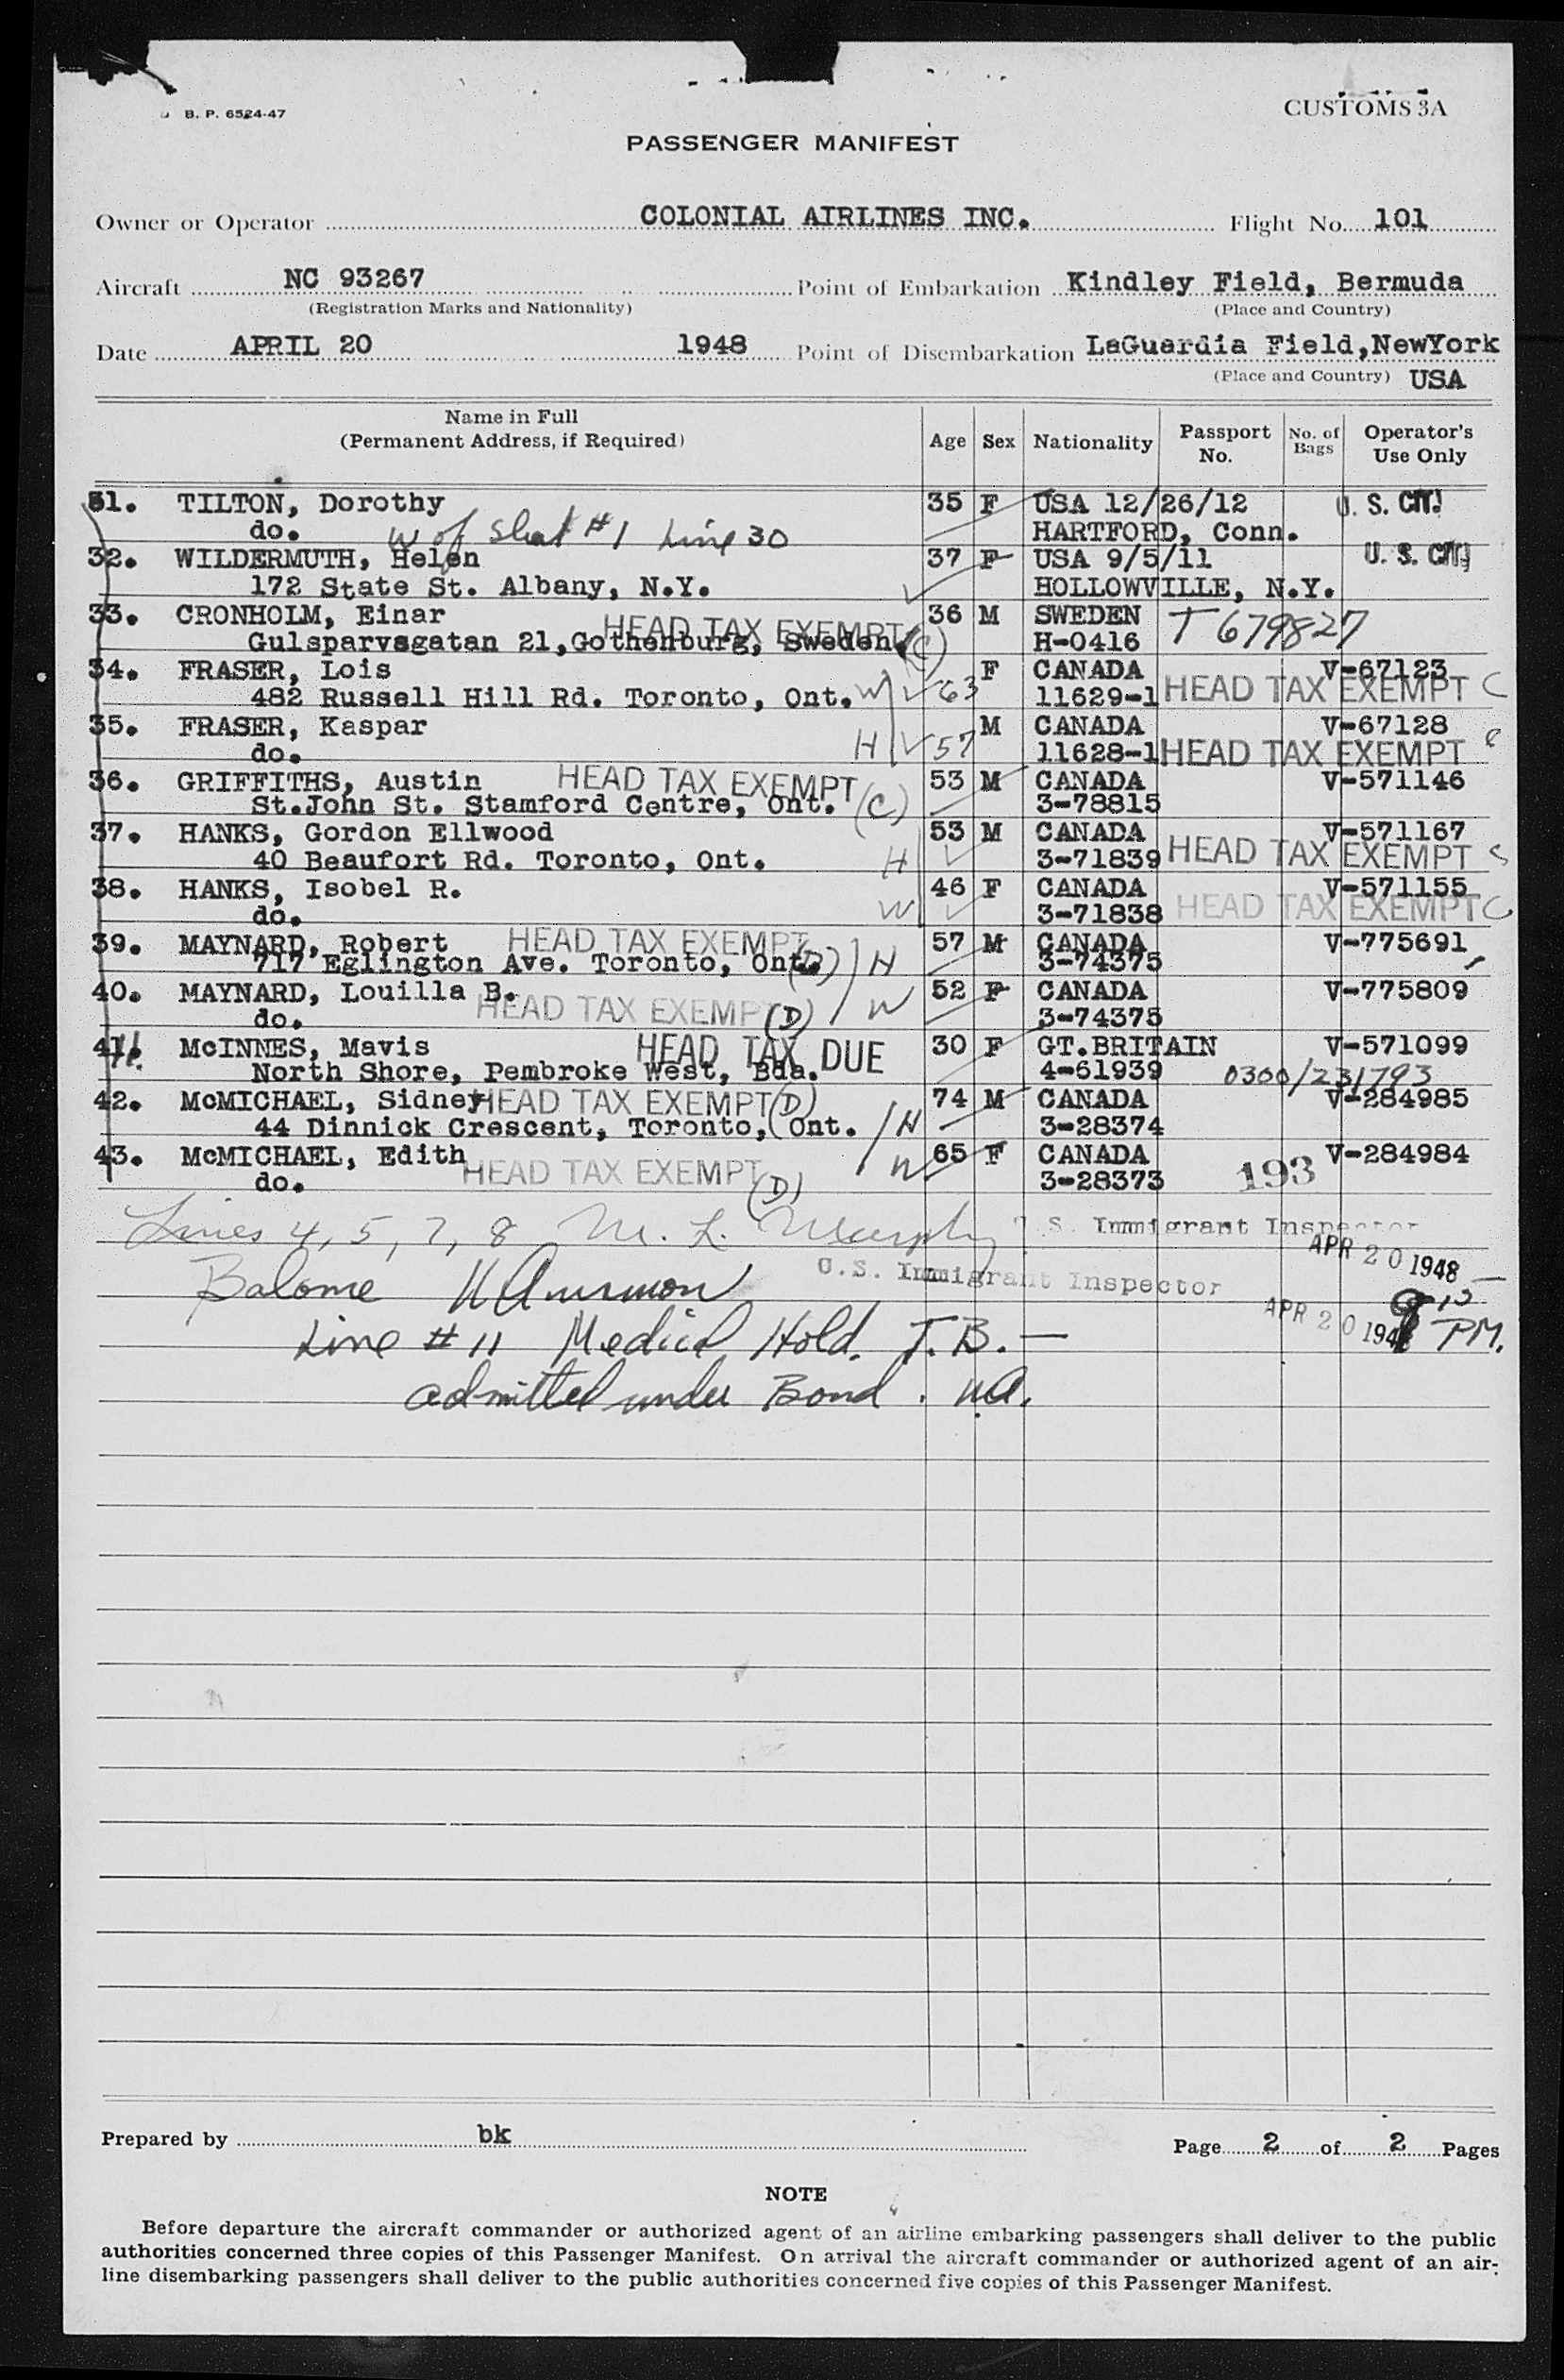 B. P. 6524-47
CUSTOMS 3A
PASSENGER MANIFEST
Owner or Operator COLONIAL AIRLINES INC. Flight No. 101
Aircraft NC 93267 Point of Embarkation Kindley Field, Bermuda
(Registration Marks and Nationality) (Place and Country)
Date APRIL 20 1948 Point of Disembarkation LaGuardia Field,NewYork
(Place and Country) USA
Name in Full
(Permanent Address, if Required) Age Sex Nationality Passport No. No. of Bags Operator's Use Only
31. TILTON, Dorothy 35 F USA 12/26/12 U. S. CIT.
do. W of Sheet #1 Line 30 HARTFORD, Conn.
32. WILDERMUTH, Helen 37 F USA 9/5/11 U. S. CIT.
172 State St. Albany, N.Y. HOLLOWVILLE, N.Y.
33. CRONHOLM, Einar HEAD TAX EXEMPT 36 M SWEDEN T 679827
Gulsparvsgatan 21,Gothenburg, Sweden. (C) H-0416
34. FRASER, Lois F CANADA V-67123
482 Russell Hill Rd. Toronto, Ont. W 63 11629-1 HEAD TAX EXEMPT C
35. FRASER, Kaspar M CANADA V-67128
do. H 57 11628-1 HEAD TAX EXEMPT C
36. GRIFFITHS, Austin HEAD TAX EXEMPT 53 M CANADA V-571146
St.John St. Stamford Centre, Ont. (C) 3-78815
37. HANKS, Gordon Ellwood 53 M CANADA V-571167
40 Beaufort Rd. Toronto, Ont. H 3-71839 HEAD TAX EXEMPT C
38. HANKS, Isobel R. 46 F CANADA V-571155
do. W 3-71838 HEAD TAX EXEMPT C
39. MAYNARD, Robert HEAD TAX EXEMPT 57 M CANADA V-775691
717 Eglington Ave. Toronto, Ont. (D) H 3-74375
40. MAYNARD, Louilla B. 52 F CANADA V-775809
do. HEAD TAX EXEMPT (D) W 3-74375
41. McINNES, Mavis HEAD TAX DUE 30 F GT.BRITAIN V-571099
11. North Shore, Pembroke West, Bda. 4-61939 0300/231793
42. McMICHAEL, Sidney HEAD TAX EXEMPT (D) 74 M CANADA V-284985
44 Dinnick Crescent, Toronto, Ont. H 3-28374
43. McMICHAEL, Edith 65 F CANADA V-284984
do. HEAD TAX EXEMPT (D) W 3-28373 193
Lines 4, 5, 7, 8 M. L. Murphy U.S. Immigrant Inspector
APR 20 1948
Balance U.S. Immigrant Inspector
APR 20 1948 9 15 PM.
Line # 11 Medical Hold. T.B. —
admitted under Bond. WA.
Prepared by bk Page 2 of 2 Pages
NOTE
Before departure the aircraft commander or authorized agent of an airline embarking passengers shall deliver to the public
authorities concerned three copies of this Passenger Manifest. On arrival the aircraft commander or authorized agent of an air-
line disembarking passengers shall deliver to the public authorities concerned five copies of this Passenger Manifest.